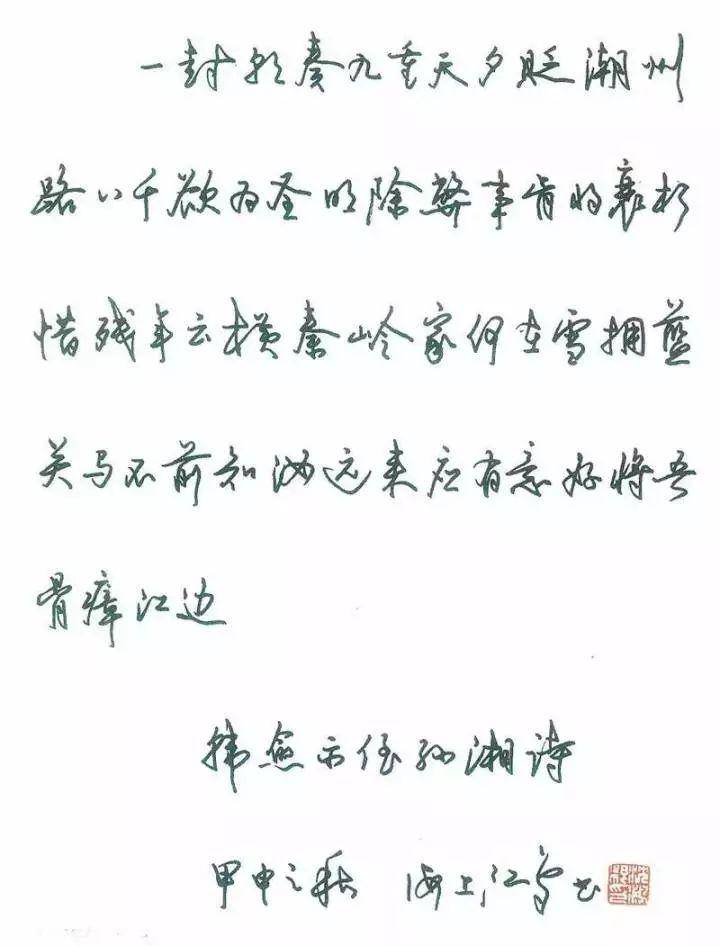 一封朝奏九重天夕贬潮州
路八千欲为圣明除弊事肯将衰朽
惜残年云横秦岭家何在雪拥蓝
关马不前知汝远来应有意好将吾
骨瘴江边
韩愈示侄孙湘诗
甲申之秋 海上江鸟书